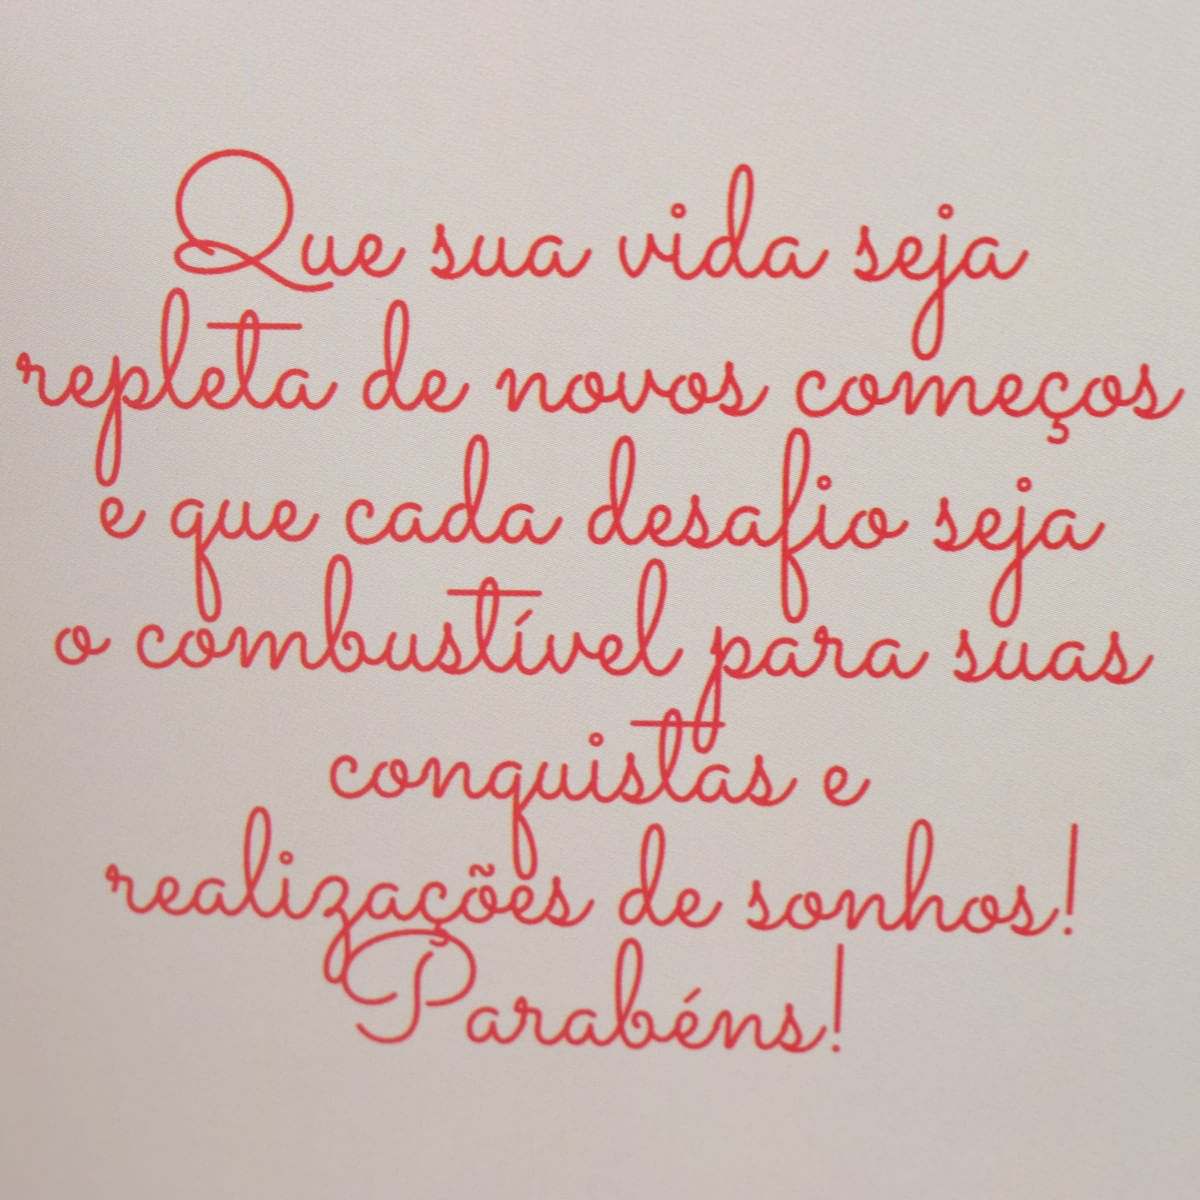 Que sua vida seja
repleta de novos começos
e que cada desafio seja
o combustível para suas
conquistas e
realizações de sonhos!
Parabéns!